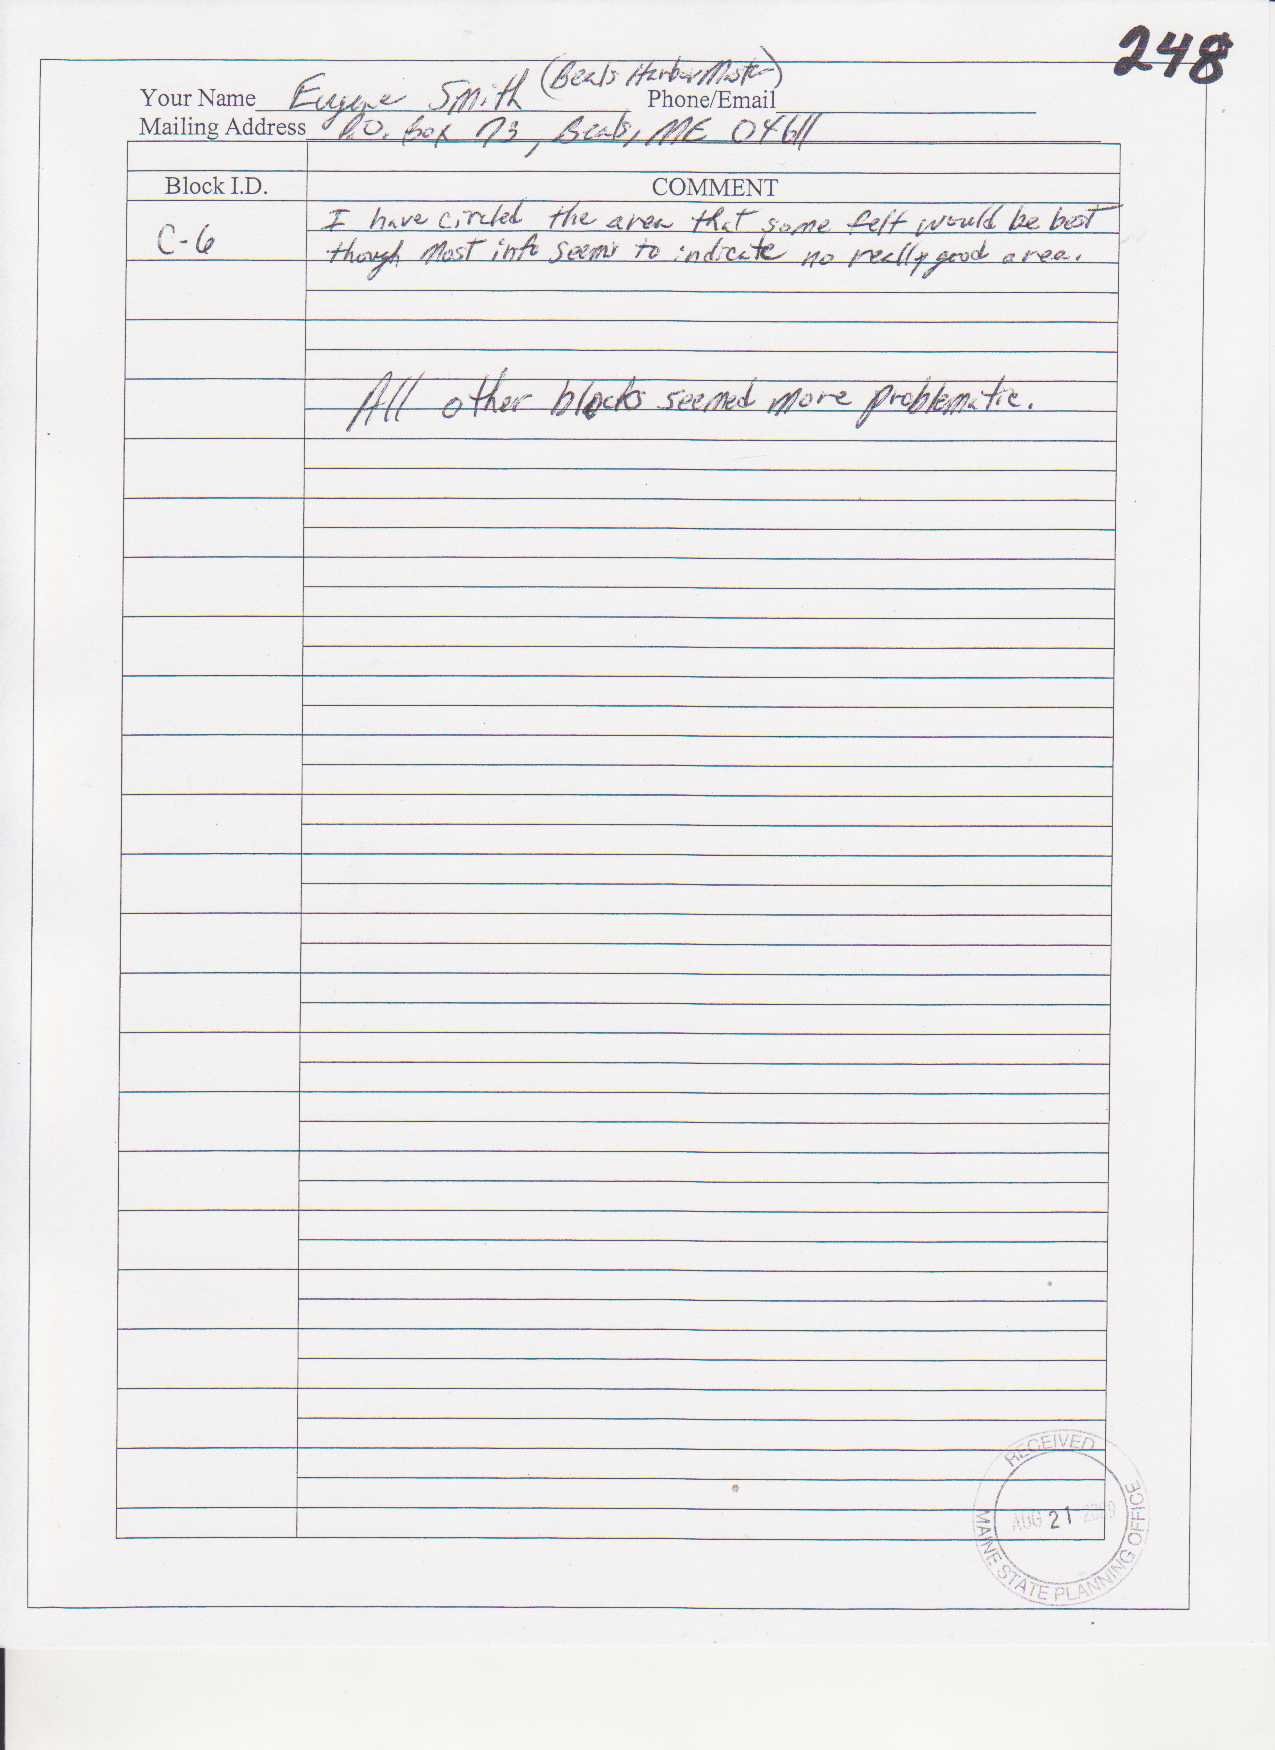 248
(Beals Harbor Master)
Your Name Eugene Smith Phone/Email
Mailing Address P.O. Box 73, Beals, ME 04611
Block I.D. COMMENT
C-6 I have circled the area that some felt would be best
though Most info seems to indicate no really good area.
All other blocks seemed more problematic.
RECEIVED
AUG 21 2009
MAINE STATE PLANNING OFFICE